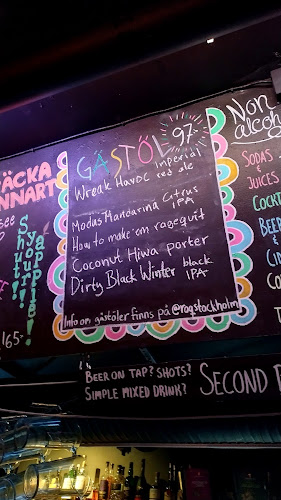 ÄCKA
NNART
see
Shut!
Your!
apple!
165-
GÄSTÖL 97-
Wreak Havoc imperial red ale
Modus Mandarina Citrus IPA
How to make 'em ragequit
Coconut Hiwa porter
Dirty Black Winter black IPA
Info om gästöler finns på @rqstockholm
Non
alcoho
SODAS
&
JUICES
COCKT
BEER
&
CID
BEER ON TAP? SHOTS?
SIMPLE MIXED DRINK?
SECOND